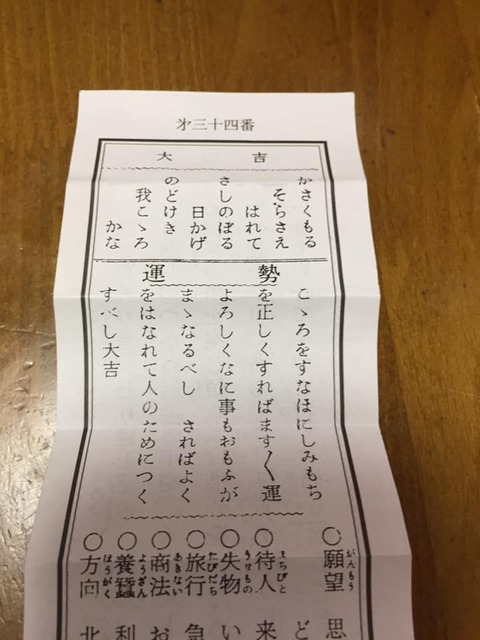 㐧三十四番
大吉
かきくもる
そらさえ
はれて
さしのぼる
日かげ
のどけき
我こゝろ
かな
運勢
こゝろをすなほにしみもち
を正しくすればます〱運
よろしくなに事もおもふが
まゝなるべし さればよく
をはなれて人のためにつく
すべし大吉
○願望 がんもう 思
ど
○待人 まちびと 来
○失物 うせもの い
○旅行 たびだち 急
○商法 あきない お
○養蠶 ようざん 利
○方向 はうがく 北